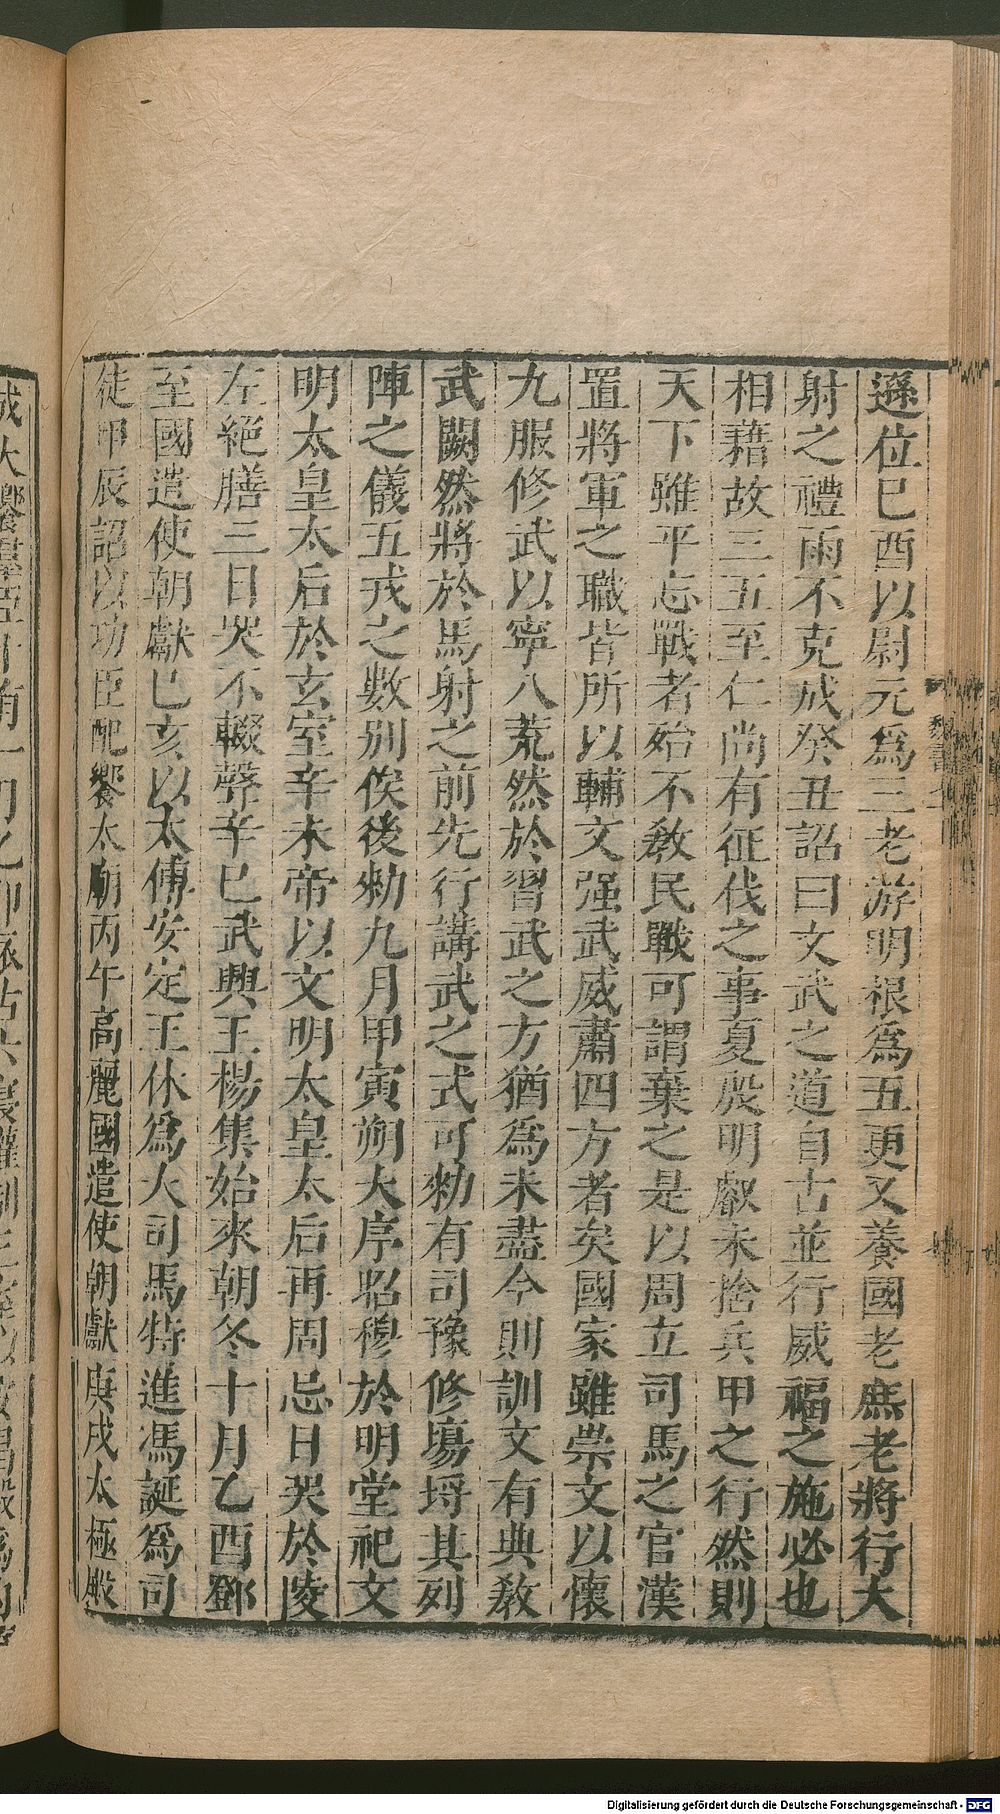 遜位己酉以尉元爲三老游明根爲五更又養國老庶老將行大
射之禮雨不克成癸丑詔曰文武之道自古並行威福之施必也
相藉故三五至仁尚有征伐之事夏殷明叡未捨兵甲之行然則
天下雖平忘戰者殆不教民戰可謂棄之是以周立司馬之官漢
置將軍之職皆所以輔文强武威肅四方者矣國家雖崇文以懷
九服修武以寧八荒然於習武之方猶爲未盡今則訓文有典教
武闕然將於馬射之前先行講武之式可勑有司豫修塲埒其列
陣之儀五戎之數別俟後勑九月甲寅朔大序昭穆於明堂祀文
明太皇太后於玄室辛未帝以文明太皇太后再周忌日哭於陵
左絕膳三日哭不輟聲辛巳武興王楊集始來朝冬十月乙酉鄧
至國遣使朝獻己亥以太傅安定王休爲大司馬特進馮誕爲司
徒甲辰詔以功臣配饗太廟丙午高麗國遣使朝獻庚戌太極殿
魏書
Digitalisierung gefördert durch die Deutsche Forschungsgemeinschaft - DFG